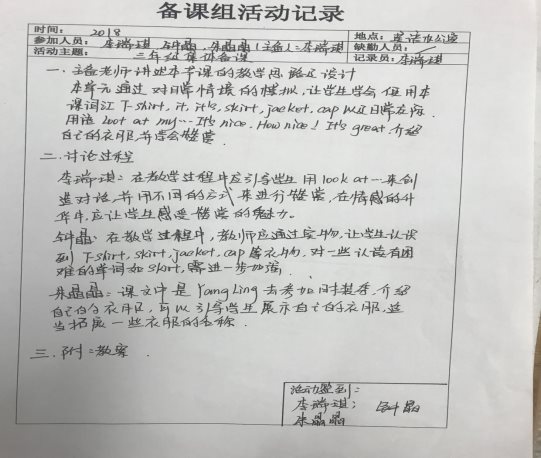 备课组活动记录
时间： 2018 地点：英语办公室
参加人员：李瑞琪，钟晶，朱晶晶（主备人：李瑞琪 缺勤人员：
活动主题： 三年级集体备课 记录员：李瑞琪
一、主备老师讲述本节课的教学思路及设计
本单元通过对日常情境的模拟，让学生学会使用本
课词汇 T-shirt, it, it's, skirt, jacket, cap 以及日常交际
用语 Look at my… It's nice. How nice! It's great. 介绍
自己的衣服，并学会赞赏
二、讨论过程
李瑞琪：在教学过程中应引导学生用look at…来创
造对话，并用不同的方式来进行赞赏，在情感的升
华中，应让学生感受赞赏的魅力。
钟晶：在教学过程中，教师应通过实物，让学生认识
到 T-shirt, skirt, jacket, cap 等衣物，对一些认读有困
难的单词如 skirt，需进一步加强。
朱晶晶：课文中是 Yang Ling 去参加时装秀，介绍
自己的衣服，可以引导学生展示自己的衣服，适
当拓展一些衣服的名称．
三、附：教案．
活动签到：
李瑞琪； 钟晶
朱晶晶